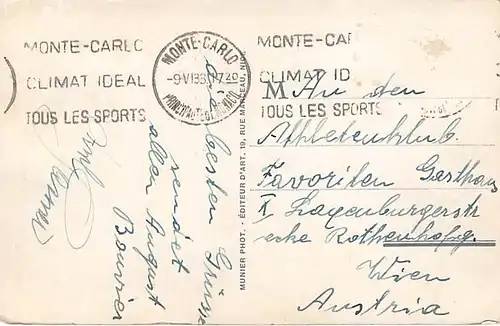 MONTE-CARLO
CLIMAT IDEAL
TOUS LES SPORTS
MONTE-CARLO
-9 VI 36 1720
PRINCIPAUTÉ DE MONACO
MONTE-CAR
CLIMAT ID
TOUS LES SPORTS
Die besten Grüsse
sendet
allen August
Bouvier
MUNIER PHOT. - ÉDITEUR D'ART, 19, RUE MARCEAU, N
M
An den
Athletenklub
Favoriten Gasthaus
X Laxenburgerstr
ecke Rothenhofg.
Wien
Austria